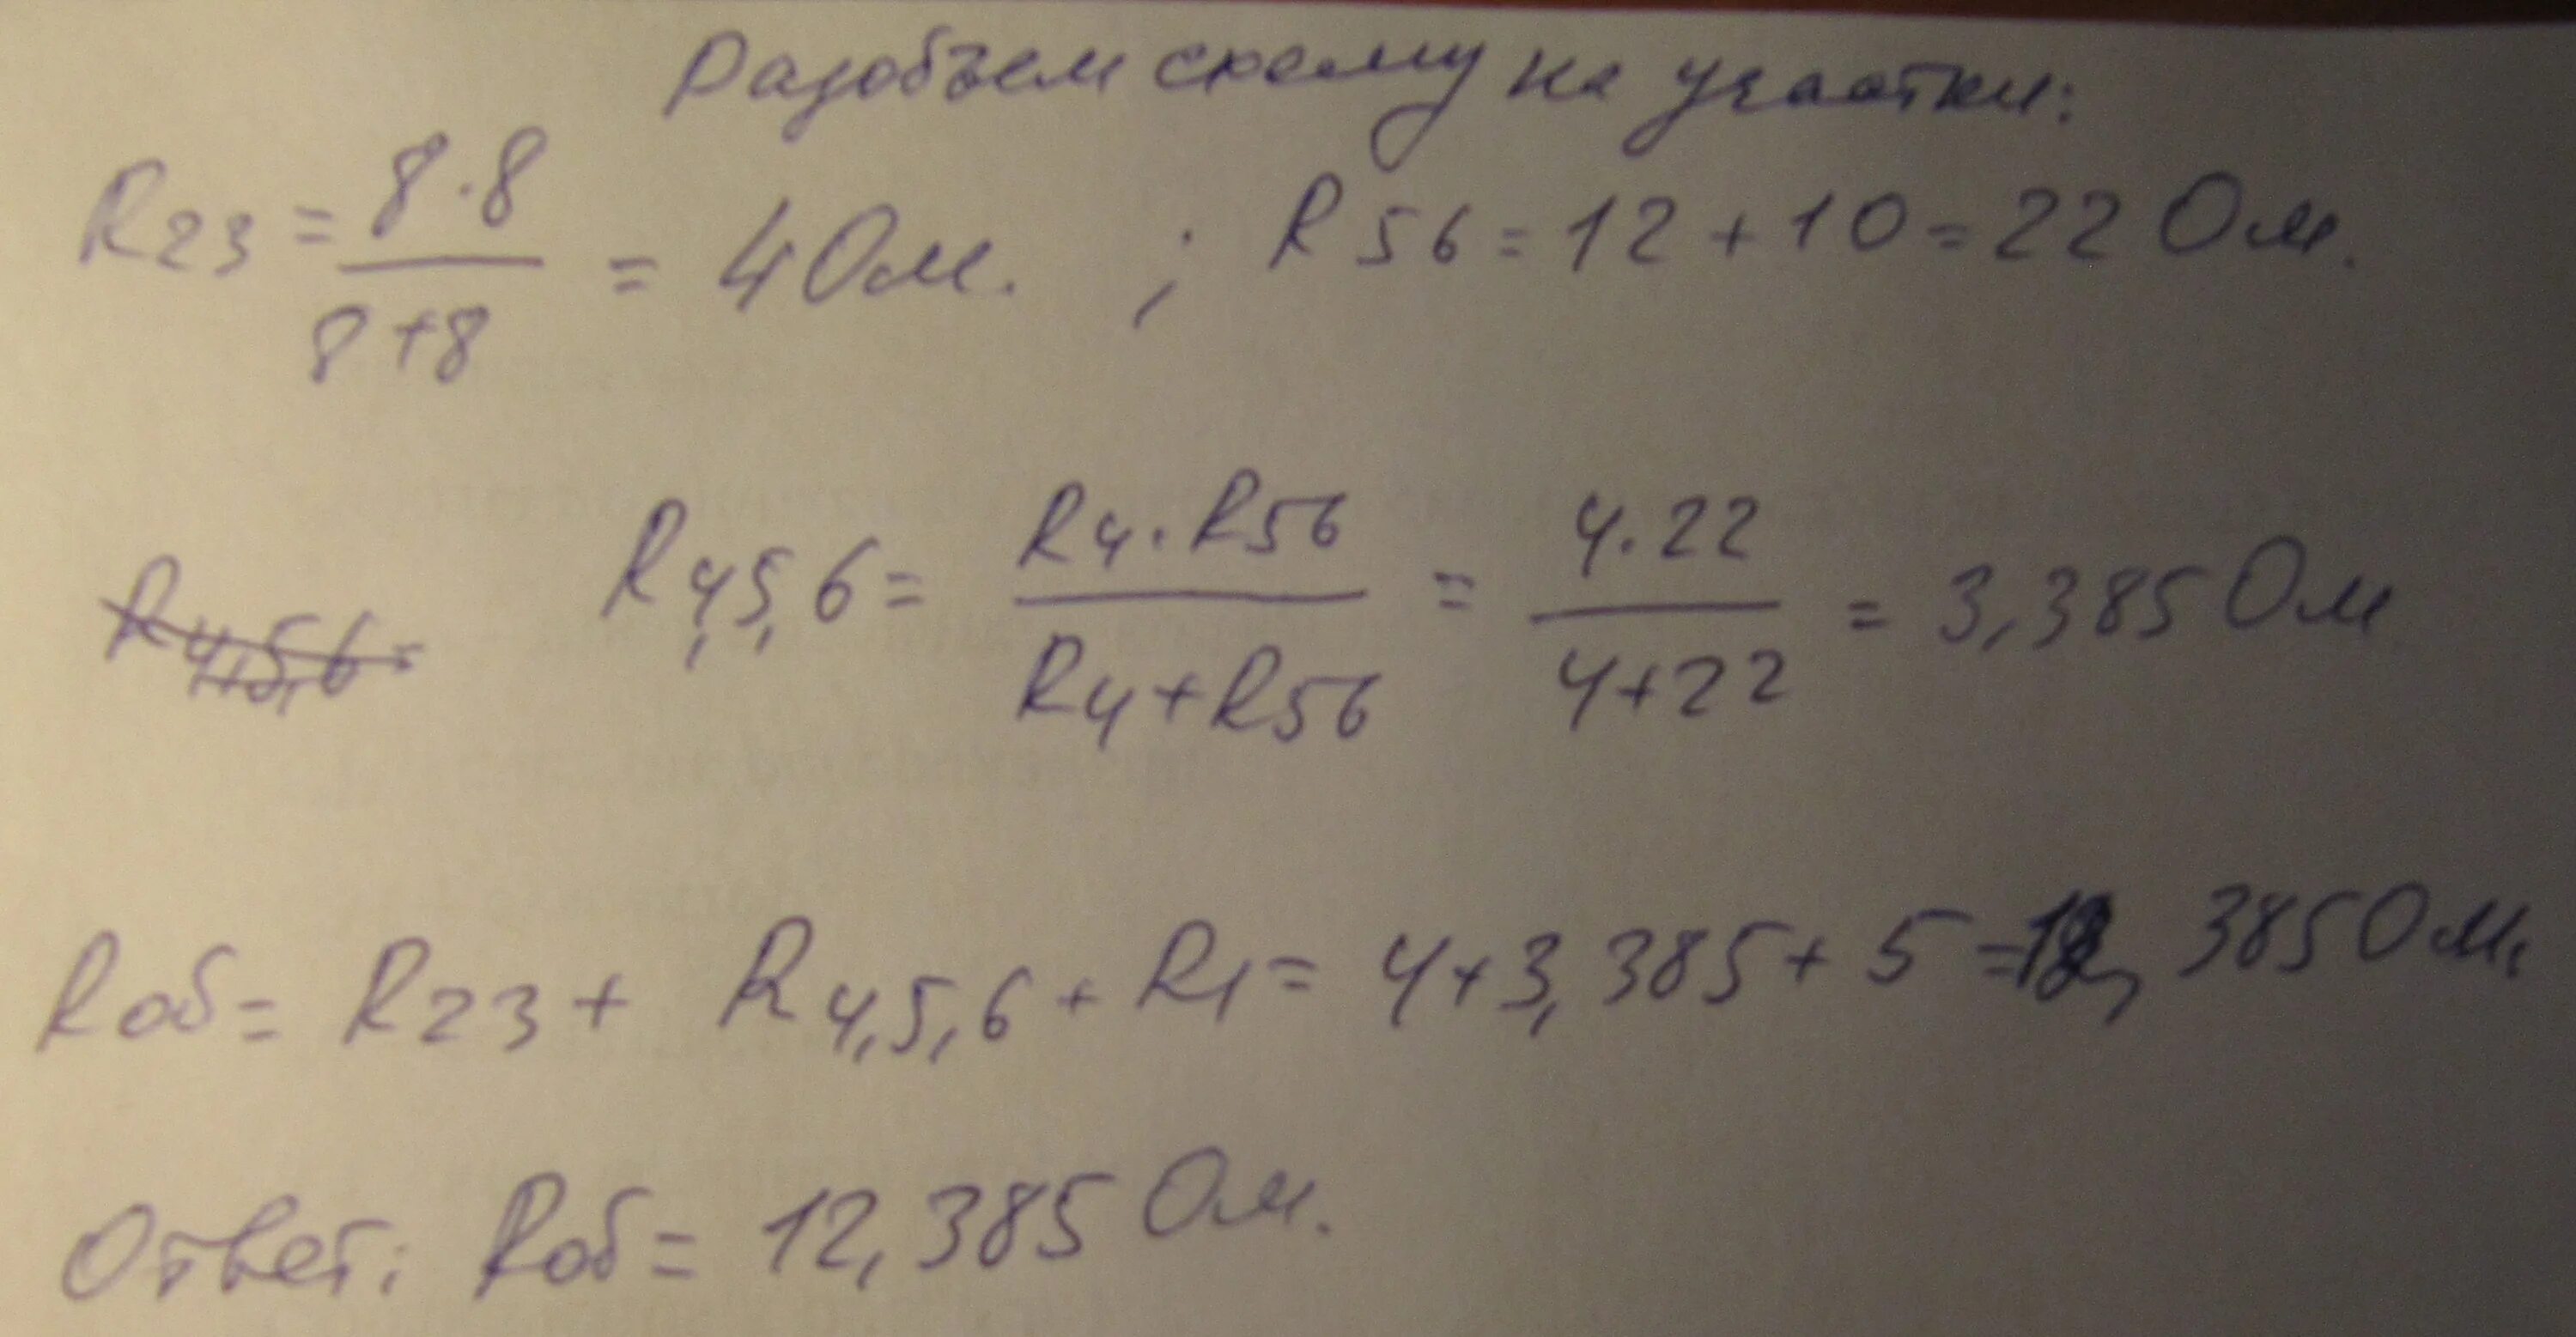 Разобъем схему на участки:
R23 = 8·8 / 8+8 = 4 Ом. ; R56 = 12 + 10 = 22 Ом.
R4,5,6 = R4,5,6 = R4·R56 / R4+R56 = 4·22 / 4+22 = 3,385 Ом
Rоб = R23 + R4,5,6 + R1 = 4+3,385+5 = 12,385 Ом.
Ответ: Rоб = 12,385 Ом.